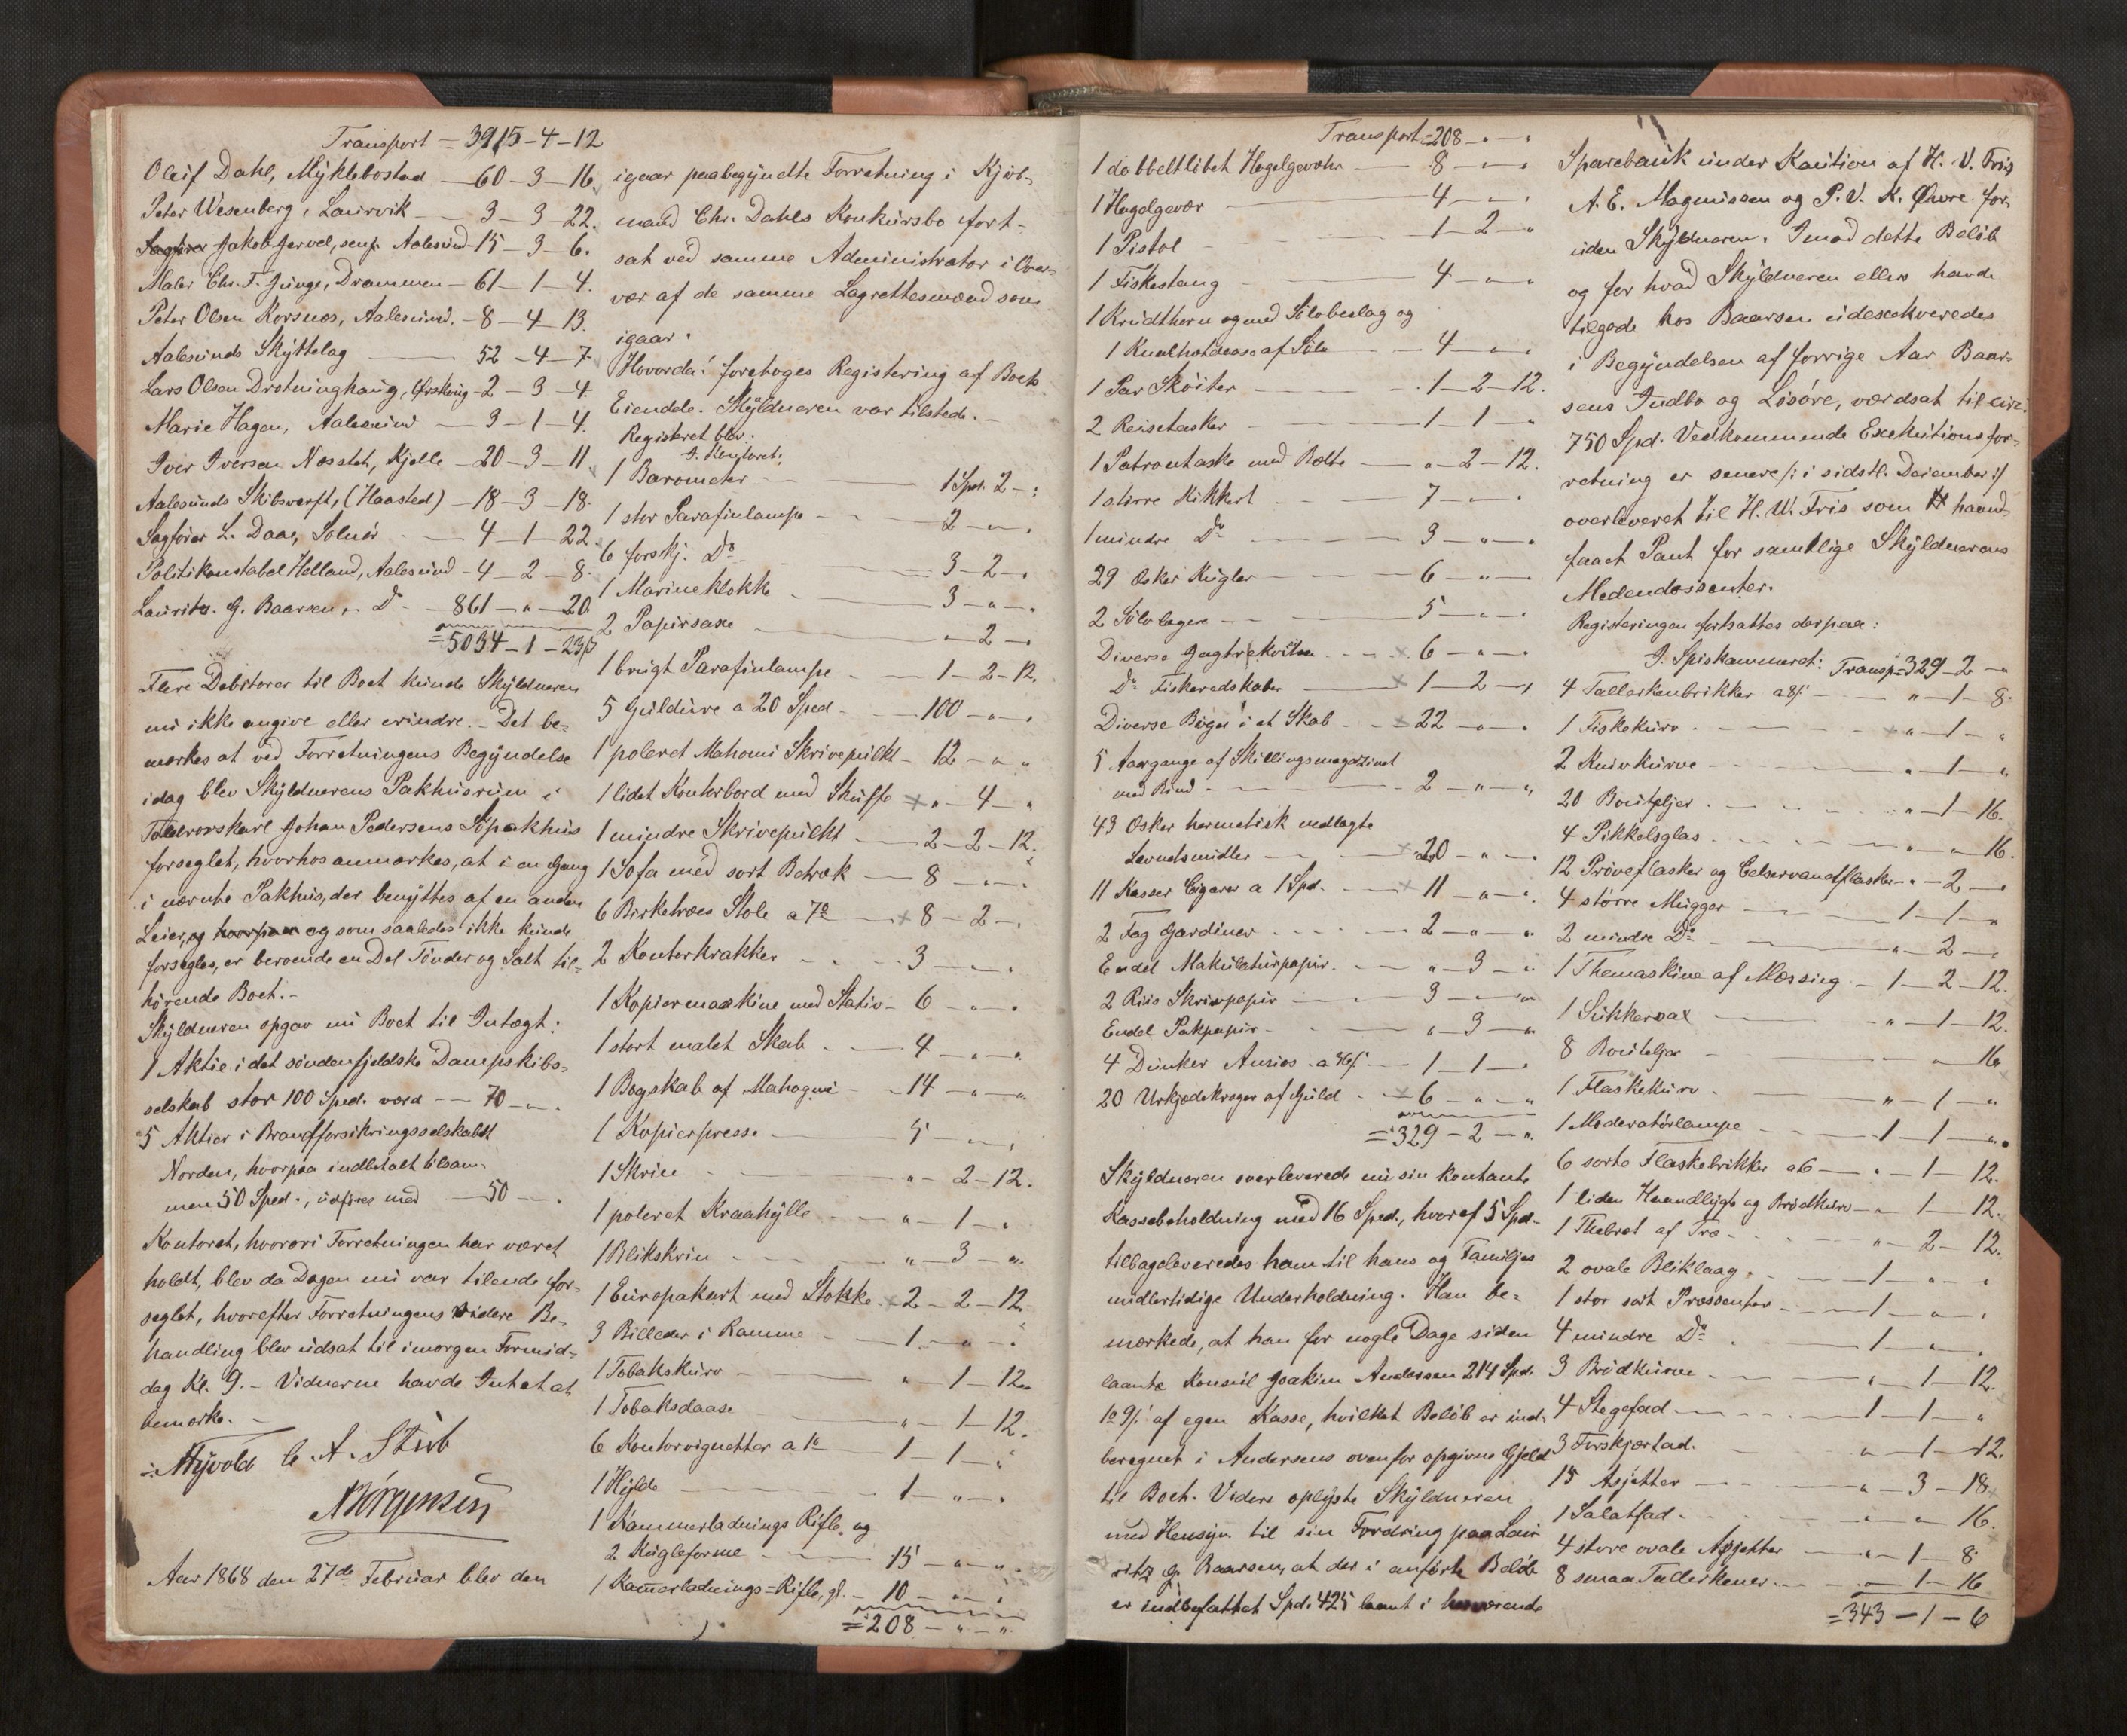 Transport = 3915-4-12
Oluf Dahl, Myklebostad — 60-3-16.
Peter Wesenberg, Laurvik — 3-3-22.
Jakob Jervel, senr. Aalesund - 15-3-6.
Maler Chr. F. Junge, Drammen - 61-1-4.
Peter Olsen Korsnes, Aalesund. - 8-4-13.
Aalesunds Skyttelag — 52-4-7
Lars Olsen Drotninghaug, Ørskoug - 2-3-4.
Marie Hagen, Aalesund — 3-1-4.
Iver Iversen Næsstet, Hjelle - 20-3-11
Aalesunds Skibsværft, (Haasted) - 18-3-18.
Sagfører L. Daae, Solnør — 4-1-22.
Politikonstabel Helland, Aalesund - 4-2-8.
Lauritz G. Baarsen, Do - 861-"-20.
= 5034-1-23ß
Flere Debitorer til Boet kunde Skyldneren
nu ikke angive eller erindre. - Det be-
mærkes at ved Forretningens Begyndelse
idag blev Skyldnerens Pakhusrum i
Toldroerskarl Johan Pedersens Søpakhus
forseglet, hvorhos anmærkes, at i en Gang
i nævnte Pakhus, der benyttes af en anden
Leier, og som saaledes ikke kunde
forsegles, er beroende en Del Tønder og Salt til-
hørende Boet. -
Skyldneren opgav nu Boet til Indtægt:
1 Aktie i det søndenfjeldske Dampskibs-
selskab stor 100 Spd. værd — 70-".
5 Aktier i Brandforsikringsselskabet
Norden, hvorpaa indbetalt tilsam-
men 50 Spd., udføres med — 50 - .
Kontoret, hvorøri Forretningen har været
holdt, blev da Dagen nu var tilende for-
seglet, hvorefter Forretningens videre Be-
handling blev udsat til imorgen Formid-
dag Kl. 9. - Vidnerne havde Intet at
bemærke. -
Myvold C. A. Stub
NJörgensen
Aar 1868 den 27de Februar blev den
igaar paabegyndte Forretning i Kjøb-
mand Chr. Dahls Konkursbo fort-
sat ved samme Administrator i Over-
vær af de samme Lagrettesmænd som
igaar.
Hvorda: foretoges Registering af Boets
Eiendele. Skyldneren var tilstede. -
Registeret blev:
I. Kontoret:
1 Barometer — 1 Spd. 2 - :
1 stor Parafinlampe — 2 - " .
6 forskj. Do — 3 - 2 - .
1 Marineklokke — 3 - " - .
2 Papirsaxe — " - 2 - .
1 brugt Parafinlampe — 1-2-12.
5 Guldure a 20 Spd — 100 - " .
1 poleret Mahoni Skrivepult - 12 - " "
1 lidet Kontorbord med Skuffe x " - 4 - "
1 mindre Skrivepult — 2-2-12.
1 Sofa med sort Betræk — 8 - " - .
6 Birketræes Stole a 7 — x 8-2- .
2 Kontorkrakker — 3 - " .
1 Kopiermaskine med Stativ - 6 - " .
1 stort malet Skab — 4 - " .
1 Bogskab af Mahogni — 14 - " - "
1 Kopierpresse — 5 - " ;
1 Skrin — " - 2-12.
1 poleret Kraahylle — " - 1 - .
1 Blikskrin — " - 3 - "
1 Europakart med Stokke x 2-2-12.
3 Billeder i Ramme — 1 - " - .
1 Tobakskurv — " - 1-12.
1 Tobaksdaase — " - 1-12.
6 Kontorvignetter a 1 — 1-1-"
1 Hylde — 1 - " - .
1 Kammerladnings Rifle, og
2 Kugleforme — 15 - " - " .
1 Kamerladnings=Rifle, gl. - 10 - " - .
= 208 - " - "
Transport = 208 - " - "
1 dobbeltløbet Hagelgevær — 8 - " - .
1 Hagelgevær — 4 - " .
1 Pistol — 1-2-"
1 Fiskestang — 4 - " - .
1 Krudthorn med Sølvbeslag og
1 daase af Sølv — 4 - " .
1 Par Skøiter — 1-2-12.
2 Reisetasker — 1-1- .
1 Patrontaske med Belte — " - 2-12.
1 større Kikkert — 7 - " - .
1 mindre Do — 3 - " - .
29 Æsker Kugler — 6 - " - .
2 Sølv — 5 - " - .
Diverse Jagtrekvisita — x 6 - " - .
Do Fiskeredskaber — x 1-2-"
Diverse Bøger i et Skab — x 22 - " .
5 Aargange af Skillingsmagazinet
med Bind — 2 - " - "
43 Æsker hermetisk nedlagte
Levnedsmidler — x 20 - " - .
11 Kasser Cigarer a 1 Spd. — x 11 - " - .
2 Fag Gardiner — 2 - " - "
Endel Makulaturpapir — " - 3 - "
2 Riis Skrivpapir — 3 - "
Endel Pakpapir — " - 3 - "
4 Dunker Ansios — 1-1- .
20 Urkjedekroger af Guld — x 6 - " - "
= 329-2-"
Skyldneren overleverede nu sin kontante
Kassebeholdning med 16 Spd., hvoraf 5 Spd.
tilbageleveredes ham til hans og Familjes
midlertidige Underholdning. Han be-
mærkede, at han for nogle Dage siden
laante Konsul Joakim Andersen 214 Spd.
af egen Kasse, hvilket Beløb er ind-
beregnet i Andersens ovenfor opgivne Gjeld
til Boet. Videre oplyste Skyldneren
med Hensyn til sin Fordring paa Lau-
ritz G. Baarsen, at der i anførte Beløb
er indbefattet Spd. 425 laant i herværende
Sparebank under Kaution af H. V. Friis
A. E. Magnussen og P. V. K. Øwre for-
uden Skyldneren. Imod dette Beløb
og for hvad Skyldneren ellers havde
tilgode hos Baarsen udexekveredes
i Begyndelsen af forrige Aar Baar-
sens Indbo og Løsøre, værdsat til circa
750 Spd. Vedkommende Exekutionsfor-
retning er senere /: i sidstl. December :/
overleveret til H. W. Friis som haand-
faaet Pant for samtlige Skyldnerens
Medendossenter.
Registeringen fortsattes derpaa:
I. Spiskammeret: Transp = 329-2-"
4 Tallerkenbrikker a 8ß — " - 1-8.
1 Fiskekurv — x " - 1 - "
2 Knivkurve — " - 1 - "
20 Bouteljer — " - 1-16.
4 Pikkelsglas — " - " 16.
12 Prøveflasker og Selservandflasker - " - 2 - .
4 større Mugger — 1-1-"
2 mindre Do — " - 2 - .
1 Themaskine af Messing — 1-2-12.
1 Sukkersax — " - 1-12.
8 Bouteljer — " 16
1 Flaskekurv — " - 1 - "
1 Moderatørlampe — 1-1-"
6 sorte Flaskebrikker a 6 — " - 1-12.
1 liden Haandlygte og Brødkurv — " 1-12.
1 Thebret af Træ — " - 2-12.
2 ovale Bliklaag — 1 - " - .
1 stor sort Præssenter — 1 - " .
4 mindre Do — 1 - " .
3 Brødkurve — " - 1-12.
4 Stegefad — 1-1-"
3 Forskjærfad. — " - 1-12.
15 Asjetter — " - 3-18
1 Salatfad — " - " 16.
4 store ovale Asjetter — " - 1-8
8 smaa Tallerkener — " - 1-16
= 343-1-6